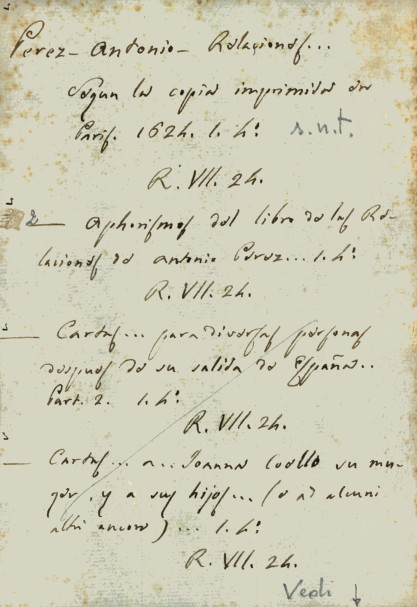 Perez - Antonio - Relaciones...
Segun la copia imprimida en
Paris. 1624. 1. 4º. s.n.t.
R. VII. 24.
2 — Aphorismos del libro de las Re-
laciones de Antonio Perez... 1. 4º.
R. VII. 24.
— Cartas... para diversas personas
despues de su salida de España..
Part. 2. 1. 4º.
R. VII. 24.
— Cartas... a.. Joanna Coello su mu-
ger, y a sus hijos... (e ad alcuni
altri ancora)... 1. 4º.
R. VII. 24.
Vedi ↓